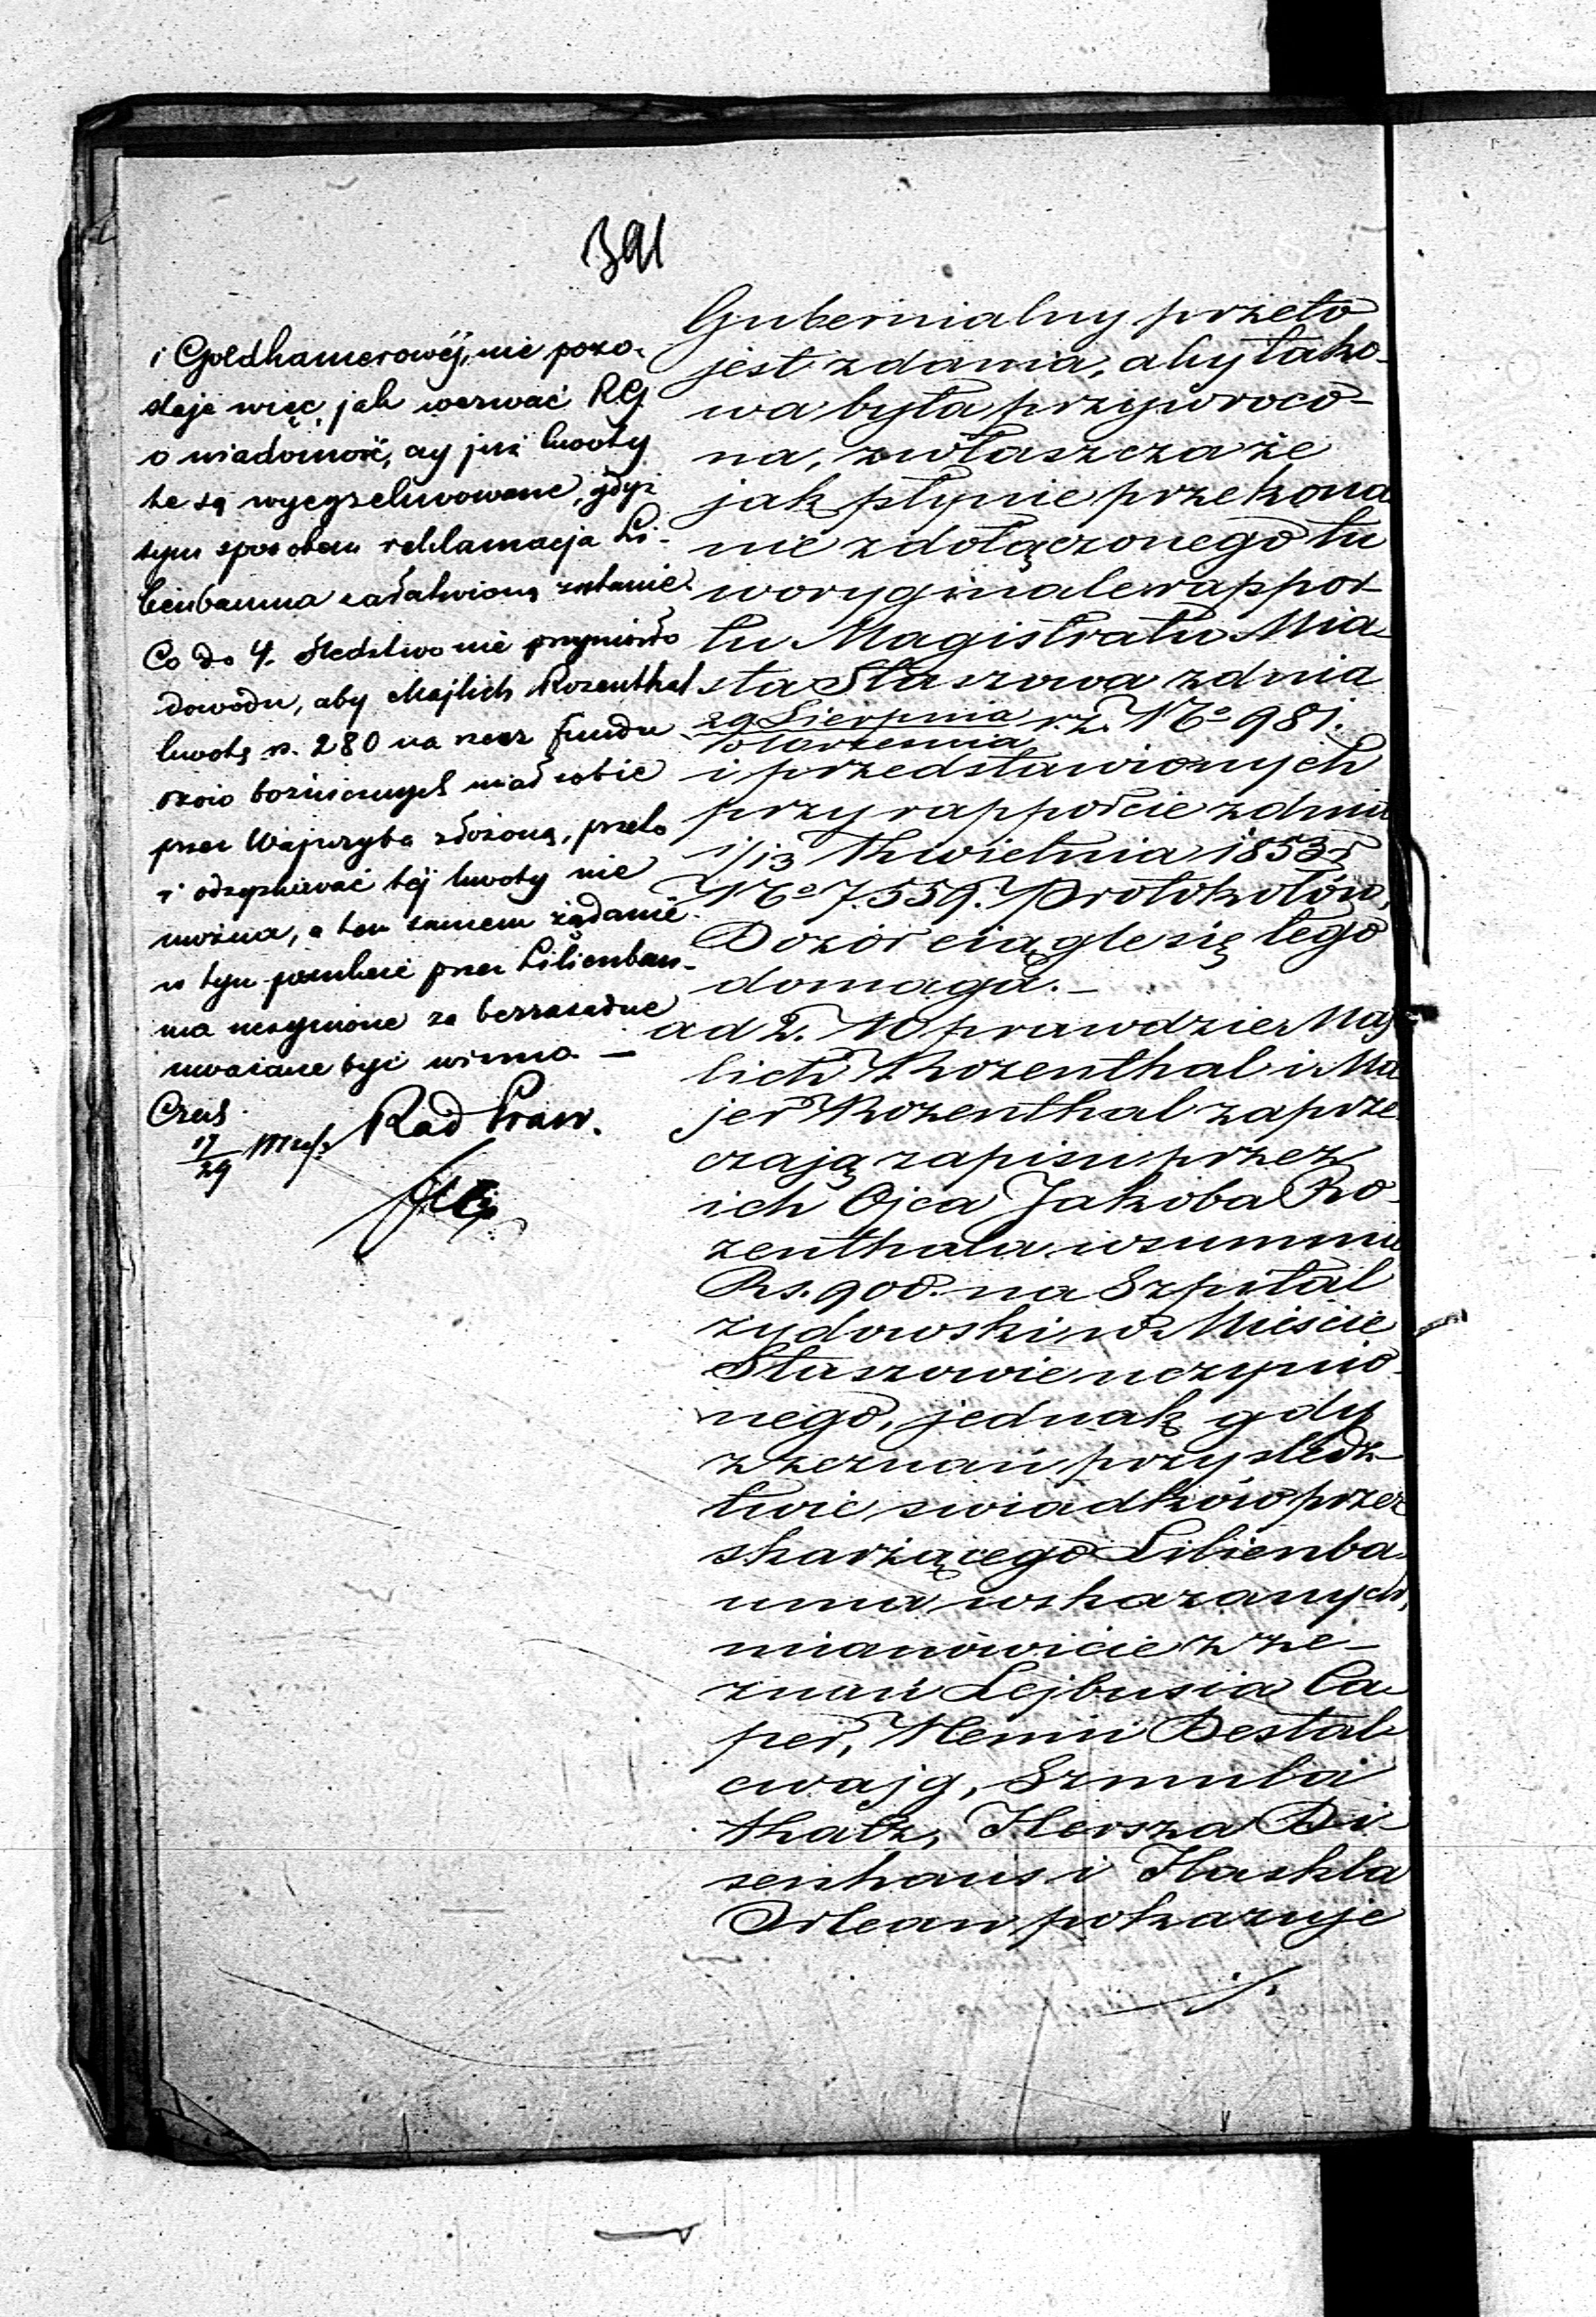 391
i Goldhamerowéj, nie pozo-
staje więc jak wezwać RG
o wiadomość, czy już kwoty
te są wyegzekwowane, gdyż
tym sposobem reklamacja Li-
lienbauma załatwioną zostanie.
Co do 4. Śledztwo nie przyniosło
dowodu, aby Majlich Rozenthal
kwotę rs. 280 na rzecz fundu-
szów bożnicznych miał sobie
przez Wajnryba złożoną, przeto
i odzyskiwać téj kwoty nie
można, a tem samem żądanie
w tym punkcie przez Lilienbau-
ma uczynione za bezzasadne
uważane być winno. —
Rad Praw.
17/29
Gubernialny przeto
jest zdania, aby tako-
wa była przywróco-
na, zwłaszcza że
jak płynie przekona
nie z dołączonego tu
w oryginale rappor-
tu Magistratu Mia-
sta Staszowa z dnia
29 Sierpnia
10 Września r. z. No 981.
i przedstawionych
przy rapporcie z dnia
1/13 Kwietnia 1853 r.
No 7.559. Protokołów,
Dozór ciągle się tego
domaga. —
ad 2. Wprawdzie Maj-
lich Rozenthal i Ma
jer Rozenthal zaprze-
czają zapisu przez
ich Ojca Jakóba Ro-
zenthala w summie
Rs. 900. na Szpital
żydowski w Mieście
Staszowie uczynio-
nego, jednak gdy
z zeznań przy śledz-
twie świadków przez
skarżącego Lilienba-
uma wskazanych,
mianowicie z ze-
znań Lejbusia Ca-
per, Henni Destal-
cwajg, Szmula
Katz, Herszа Di-
zenhaus i Haskla
Orlean pokazuje